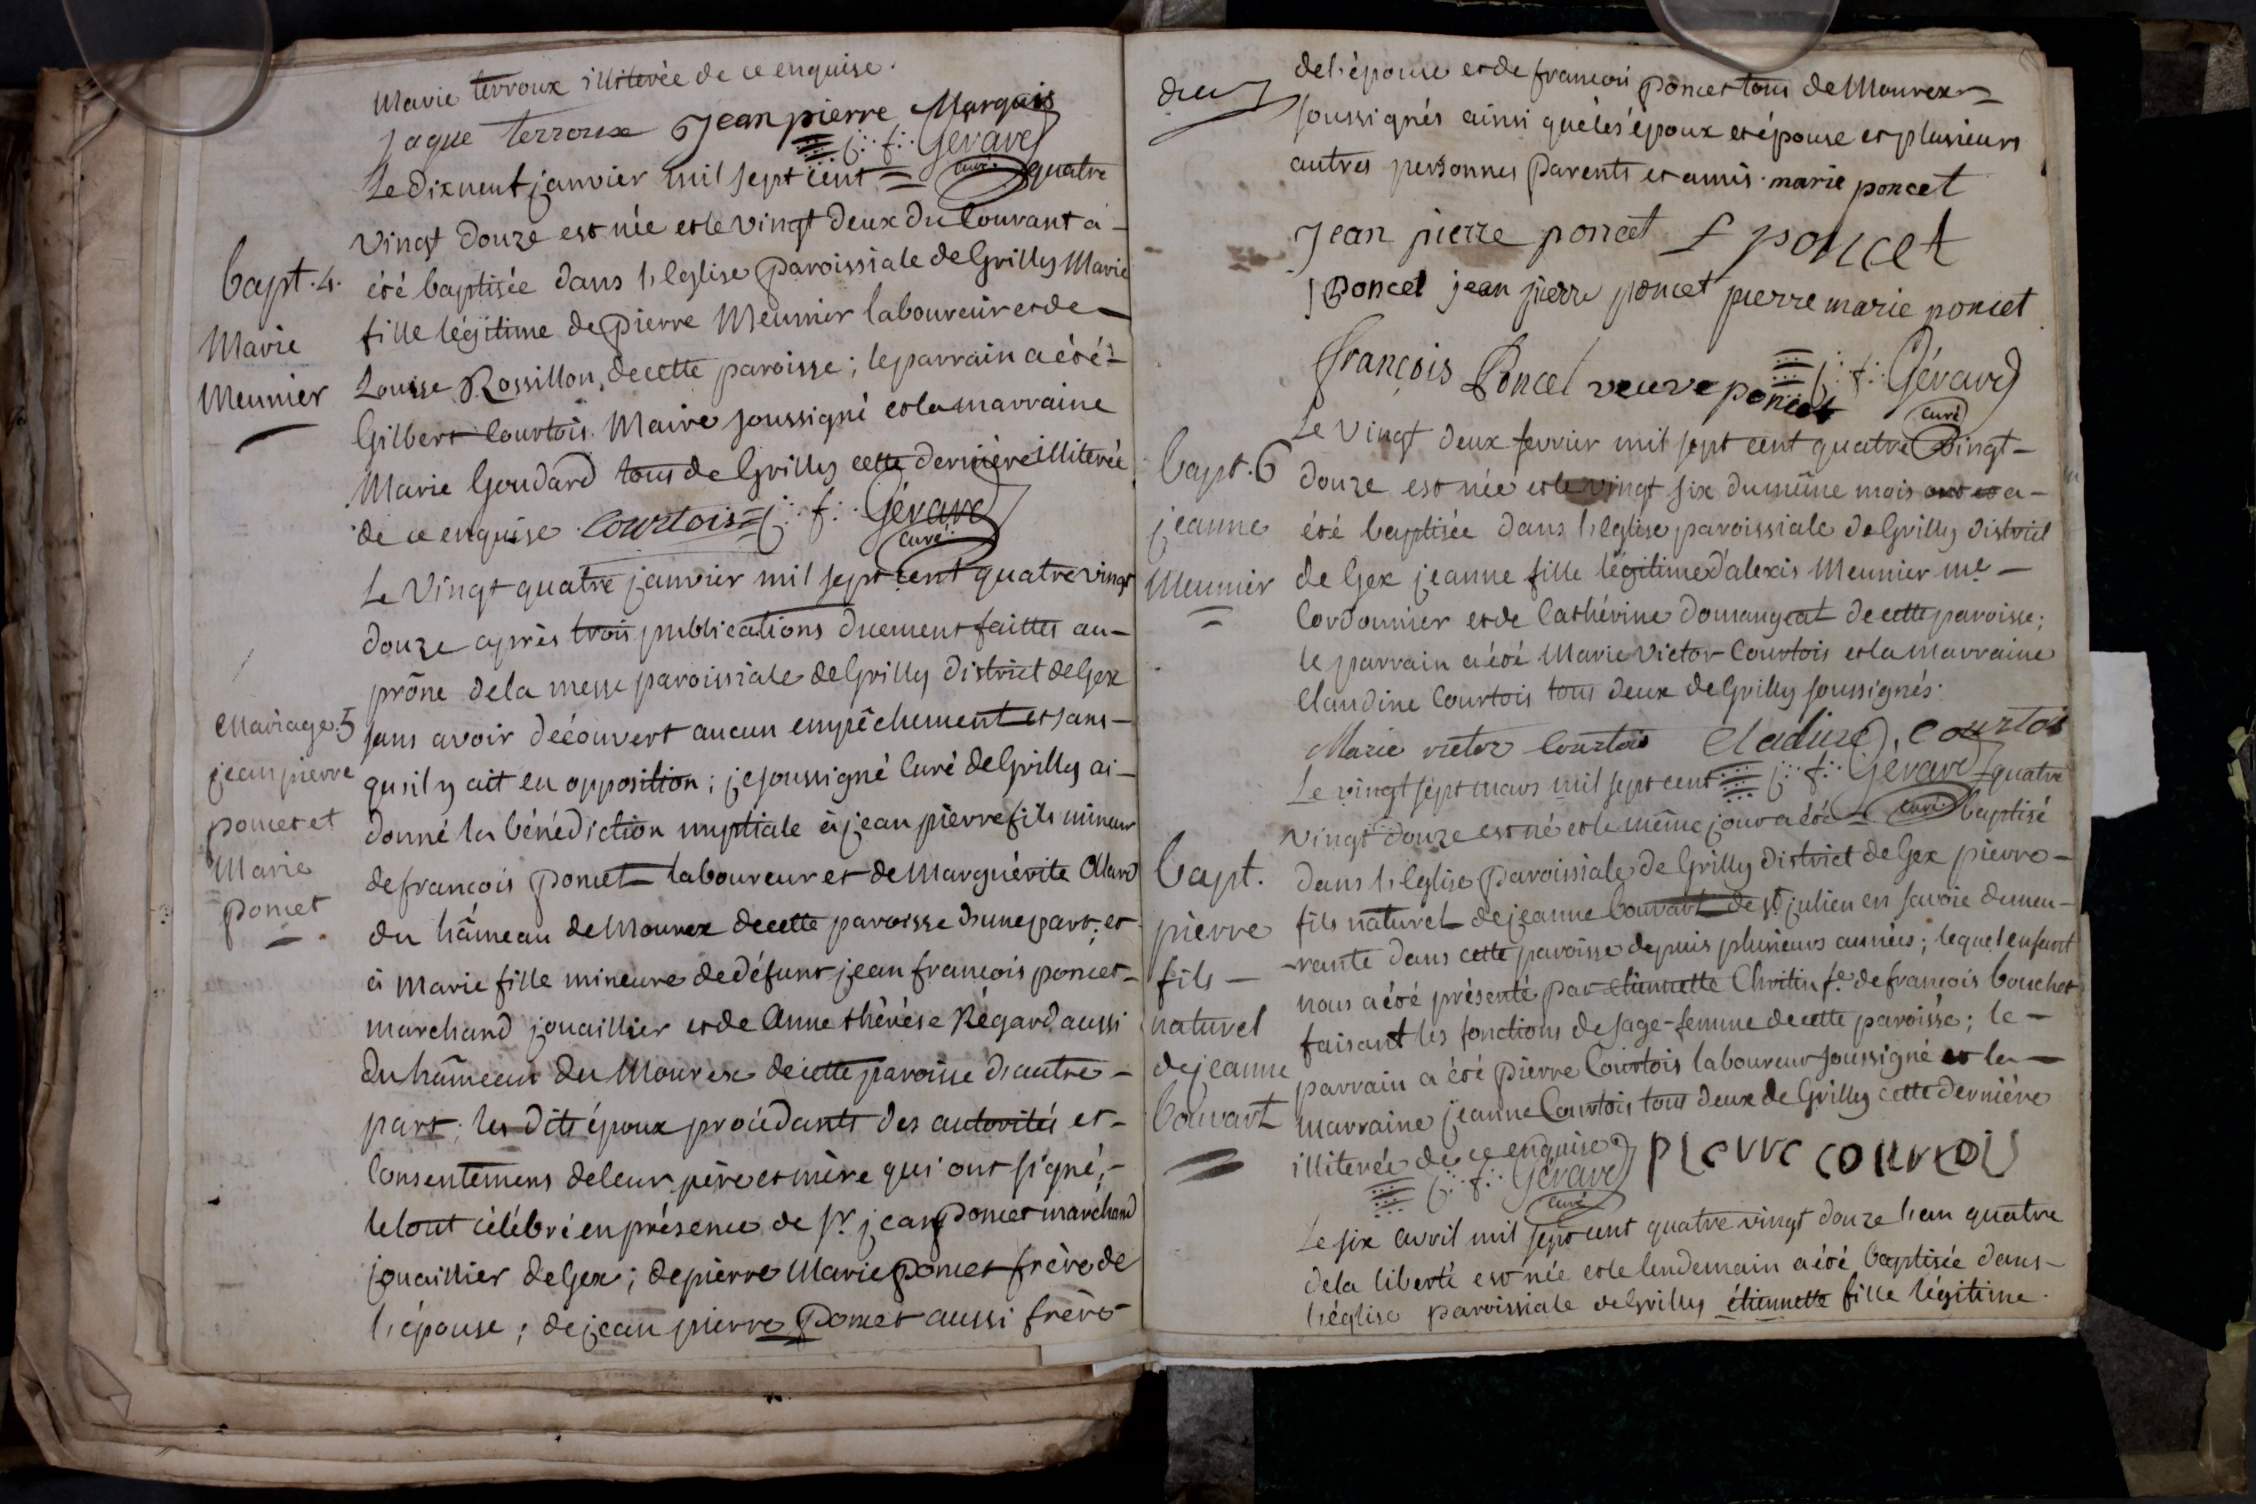 Marie terroux illiterée de ce enquise.
Jaque terroux Jean pierre Marquis
j: f: Gérard
curé
Le dixneuf janvier mil sept cent quatre
Vingt douze est née et le vingt deux du Courant a
bapt. 4.
été baptisée dans l'Eglise paroissiale de Grilly Marie
fille légitime de pierre Meunier laboureur et de
Marie
Meunier
Louise Rossillon, de cette paroisse; le parrain a été
Gilbert Courtois Maire soussigné et la marraine
Marie Goudard tous de Grilly cette dernière illiterée
de ce enquise Courtois j: f: Gérard
curé
Le Vingt quatre janvier mil sept cent quatre vingt
douze après trois publications duement faittes au
prône de la messe paroissiale de Grilly district de Gex
Mariage 5
jean pierre
poncet et
Marie
poncet
sans avoir découvert aucun empêchement et sans
qu'il y ait eu opposition; je soussigné Curé de Grilly ai
donné la bénédiction nuptiale à jean pierre fils mineur
de françois poncet laboureur et de Marguérite Allard
du hâmeau de Mourex de cette paroisse d'une part; et
à Marie fille mineure de défunt jean françois poncet
marchand jouaillier et de Anne thérése Régard aussi
du hâmeau du Mourex de cette paroisse d'autre
part; les dits époux procédants des autorités et
Consentemens de leur père et mère qui ont signé;
le tout célébré en présence de Sr. jean poncet marchand
jouaillier de Gex; de pierre Marie poncet frère de
l'épouse; de jean pierre poncet aussi frère
deux
de l'épouse et de françois poncet tous de Mourex
soussignés ainsi que les époux et épouse et plusieurs
autres personnes parents et amis. marie poncet
Jean pierre poncet f poncet
J poncet jean pierre poncet pierre marie poncet
françois Poncet veuve poncet j: f: Gérard
curé
bapt. 6
jeanne
Meunier
Le Vingt deux fevrier mil sept cent quatre Vingt
douze est née et le vingt six du même mois a
été baptisée dans l'église paroissiale de Grilly district
de Gex jeanne fille légitime d'alexis Meunier me
Cordonnier et de Cathérine domangeat de cette paroisse;
le parrain a été Marie Victor Courtois et la marraine
Claudine Courtois tous deux de Grilly soussignés.
Marie victor Courtois Cladine Courtois
j: f: Gérard
curé
Le vingt sept mars mil sept cent quatre
vingt douze est né et le même jour a été baptisé
bapt.
pierre
fils
naturel
de jeanne
bouvart
dans l'Eglise paroissiale de Grilly district de Gex pierre
fils naturel de jeanne bouvart de st julien en savoie demeu-
-rante dans cette paroisse depuis plusieurs années; lequel enfant
nous a été présenté par etiennette Christin fe. de françois bouchet
faisant les fonctions de sage-femme de cette paroisse; le
parrain a été pierre Courtois laboureur soussigné et la
marraine jeanne Courtois tous deux de Grilly cette dernière
illiterée de ce enquise pierre courtois
j: f: Gérard
curé
Le six avril mil sept cent quatre vingt douze l'an quatre
de la liberté est née et le lendemain a été baptisée dans
l'église paroissiale de Grilly étiennette fille légitime.